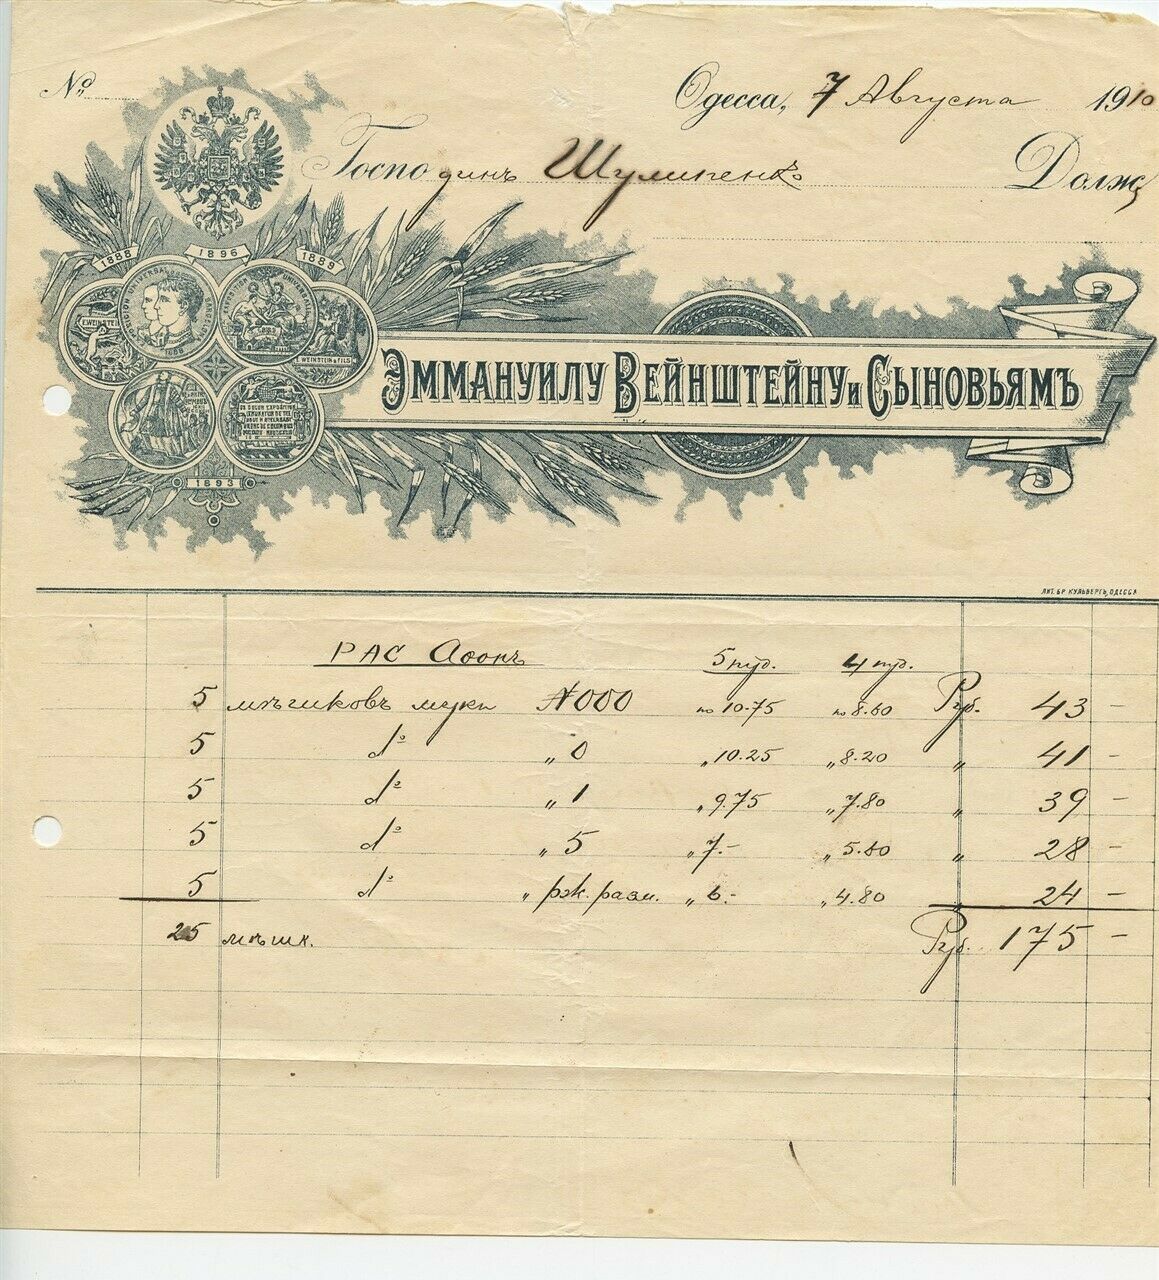 № Одесса, 7 Августа 1910
Господинъ Шулипенко Долж
1888 1896 1889
E. WEINSTEIN & FILS
ЭММАНУИЛУ ВЕЙНШТЕЙНУ и СЫНОВЬЯМЪ
1893
ЛИТ. БР. КУЛЬБЕРГЪ, ОДЕССА
РАС 5 пуд. 4 пуд.
5 мѣшковъ муки № 000 по 10.75 по 8.60 Руб. 43 –
5 dº „ 0 „ 10.25 „ 8.20 „ 41 –
5 dº „ 1 „ 9.75 „ 7.80 „ 39 –
5 dº „ 5 „ 7.- „ 5.60 „ 28 –
5 dº „ рж. разм. „ 6.- „ 4.80 „ 24 –
25 мѣшк. Руб. 175 –